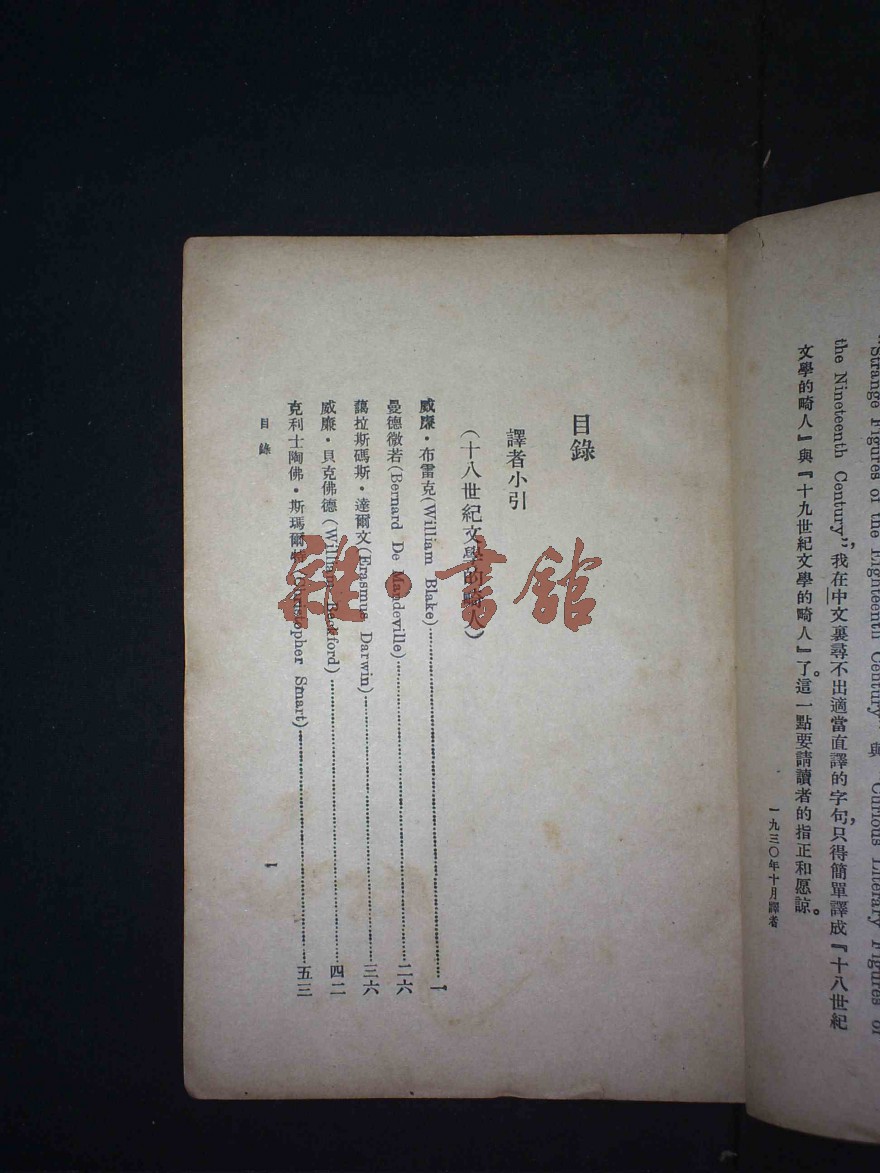 "Strange Figures of the Eighteenth Century" 與 "Curious Literary Figures of
the Nineteenth Century", 我在中文裏尋不出適當直譯的字句，只得簡單譯成『十八世紀
文學的畸人』與『十九世紀文學的畸人』了。這一點要請讀者的指正和愿諒。
一九三〇年十月譯者
目錄
譯者小引
(十八世紀文學的畸人)
威廉・布雷克(William Blake)……一
曼德微若(Bernard De Mandeville)……二六
藹拉斯碼斯・達爾文(Erasmus Darwin)……三六
威廉・貝克佛德(William Beckford)……四二
克利士陶佛・斯瑪爾特(Christopher Smart)……五三
目錄
1
雜・書館